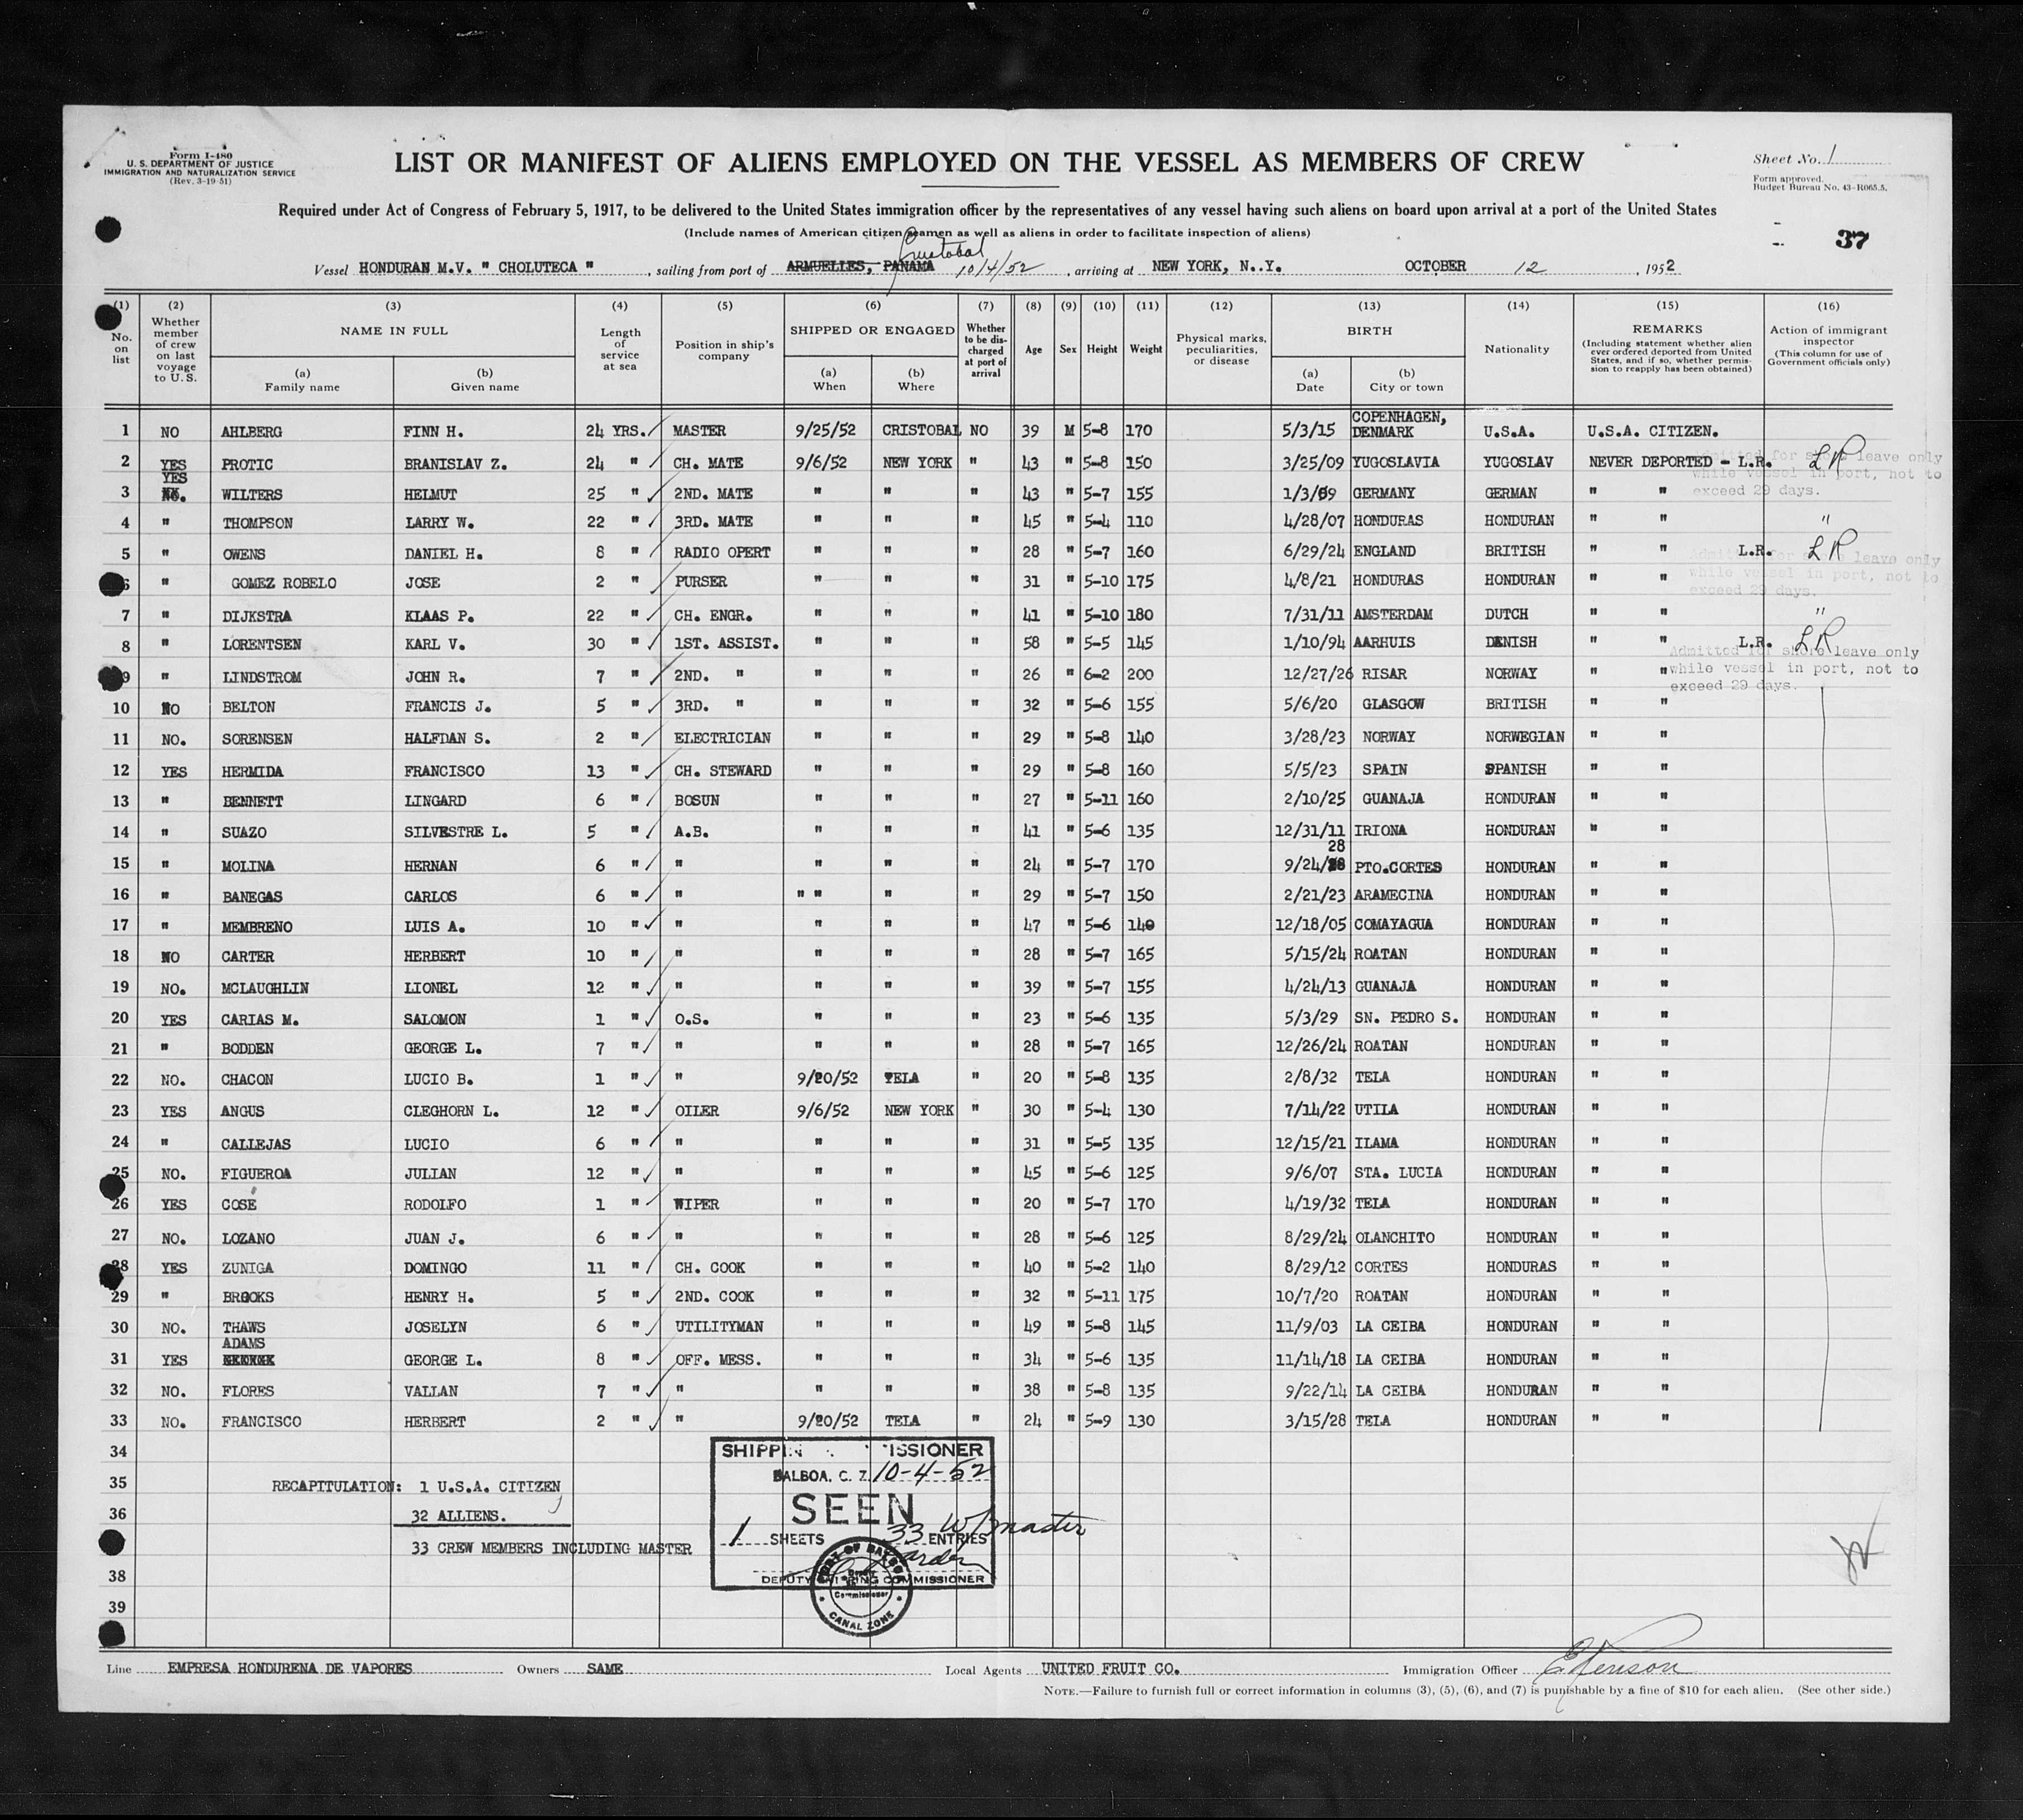 Form I-480
U. S. DEPARTMENT OF JUSTICE
IMMIGRATION AND NATURALIZATION SERVICE
(Rev. 3-19-51)
LIST OR MANIFEST OF ALIENS EMPLOYED ON THE VESSEL AS MEMBERS OF CREW
Sheet No. 1
Form approved.
Budget Bureau No. 43-R065.5.
Required under Act of Congress of February 5, 1917, to be delivered to the United States immigration officer by the representatives of any vessel having such aliens on board upon arrival at a port of the United States
(Include names of American citizen seamen as well as aliens in order to facilitate inspection of aliens)
37
Cristobal
Vessel HONDURAN M.V. " CHOLUTECA " , sailing from port of ARMUELLES, PANAMA 10/4/52 , arriving at NEW YORK, N..Y. OCTOBER 12 , 1952
(1) No. on list
(2) Whether member of crew on last voyage to U. S.
(3) NAME IN FULL (a) Family name (b) Given name
(4) Length of service at sea
(5) Position in ship's company
(6) SHIPPED OR ENGAGED (a) When (b) Where
(7) Whether to be discharged at port of arrival
(8) Age
(9) Sex
(10) Height
(11) Weight
(12) Physical marks, peculiarities, or disease
(13) BIRTH (a) Date (b) City or town
(14) Nationality
(15) REMARKS (Including statement whether alien ever ordered deported from United States, and if so, whether permission to reapply has been obtained)
(16) Action of immigrant inspector (This column for use of Government officials only)
1 NO AHLBERG FINN H. 24 YRS. MASTER 9/25/52 CRISTOBAL NO 39 M 5-8 170 5/3/15 COPENHAGEN, DENMARK U.S.A. U.S.A. CITIZEN.
2 YES PROTIC BRANISLAV Z. 24 " CH. MATE 9/6/52 NEW YORK " 43 " 5-8 150 3/25/09 YUGOSLAVIA YUGOSLAV NEVER DEPORTED - L.R. LR
Admitted for shore leave only while vessel in port, not to exceed 29 days.
3 YES NO. WILTERS HELMUT 25 " 2ND. MATE " " " 43 " 5-7 155 1/3/09 GERMANY GERMAN " "
4 " THOMPSON LARRY W. 22 " 3RD. MATE " " " 45 " 5-4 110 4/28/07 HONDURAS HONDURAN " " "
5 " OWENS DANIEL H. 8 " RADIO OPERT " " " 28 " 5-7 160 6/29/24 ENGLAND BRITISH " " L.R. LR
Admitted for shore leave only while vessel in port, not to exceed 29 days.
6 " GOMEZ ROBELO JOSE 2 " PURSER " " " 31 " 5-10 175 4/8/21 HONDURAS HONDURAN " "
7 " DIJKSTRA KLAAS P. 22 " CH. ENGR. " " " 41 " 5-10 180 7/31/11 AMSTERDAM DUTCH " " "
8 " LORENTSEN KARL V. 30 " 1ST. ASSIST. " " " 58 " 5-5 145 1/10/94 AARHUIS DANISH " " L.R. LR
Admitted for shore leave only while vessel in port, not to exceed 29 days.
9 " LINDSTROM JOHN R. 7 " 2ND. " " " " 26 " 6-2 200 12/27/26 RISAR NORWAY " "
10 NO BELTON FRANCIS J. 5 " 3RD. " " " " 32 " 5-6 155 5/6/20 GLASGOW BRITISH " "
11 NO. SORENSEN HALFDAN S. 2 " ELECTRICIAN " " " 29 " 5-8 140 3/28/23 NORWAY NORWEGIAN " "
12 YES HERMIDA FRANCISCO 13 " CH. STEWARD " " " 29 " 5-8 160 5/5/23 SPAIN SPANISH " "
13 " BENNETT LINGARD 6 " BOSUN " " " 27 " 5-11 160 2/10/25 GUANAJA HONDURAN " "
14 " SUAZO SILVESTRE L. 5 " A.B. " " " 41 " 5-6 135 12/31/11 IRIONA HONDURAN " "
15 " MOLINA HERNAN 6 " " " " " 24 " 5-7 170 9/24/28 PTO.CORTES HONDURAN " "
16 " BANEGAS CARLOS 6 " " " " " " 29 " 5-7 150 2/21/23 ARAMECINA HONDURAN " "
17 " MEMBRENO LUIS A. 10 " " " " " 47 " 5-6 140 12/18/05 COMAYAGUA HONDURAN " "
18 NO CARTER HERBERT 10 " " " " " 28 " 5-7 165 5/15/24 ROATAN HONDURAN " "
19 NO. MCLAUGHLIN LIONEL 12 " " " " " 39 " 5-7 155 4/24/13 GUANAJA HONDURAN " "
20 YES CARIAS M. SALOMON 1 " O.S. " " " 23 " 5-6 135 5/3/29 SN. PEDRO S. HONDURAN " "
21 " BODDEN GEORGE L. 7 " " " " " 28 " 5-7 165 12/26/24 ROATAN HONDURAN " "
22 NO. CHACON LUCIO B. 1 " " 9/20/52 TELA " 20 " 5-8 135 2/8/32 TELA HONDURAN " "
23 YES ANGUS CLEGHORN L. 12 " OILER 9/6/52 NEW YORK " 30 " 5-4 130 7/14/22 UTILA HONDURAN " "
24 " CALLEJAS LUCIO 6 " " " " " 31 " 5-5 135 12/15/21 ILAMA HONDURAN " "
25 NO. FIGUEROA JULIAN 12 " " " " " 45 " 5-6 125 9/6/07 STA. LUCIA HONDURAN " "
26 YES COSE RODOLFO 1 " WIPER " " " 20 " 5-7 170 4/19/32 TELA HONDURAN " "
27 NO. LOZANO JUAN J. 6 " " " " " 28 " 5-6 125 8/29/24 OLANCHITO HONDURAN " "
28 YES ZUNIGA DOMINGO 11 " CH. COOK " " " 40 " 5-2 140 8/29/12 CORTES HONDURAS " "
29 " BROOKS HENRY H. 5 " 2ND. COOK " " " 32 " 5-11 175 10/7/20 ROATAN HONDURAN " "
30 NO. THAWS JOSELYN 6 " UTILITYMAN " " " 49 " 5-8 145 11/9/03 LA CEIBA HONDURAN " "
31 YES ADAMS GEORGE L. 8 " OFF. MESS. " " " 34 " 5-6 135 11/14/18 LA CEIBA HONDURAN " "
32 NO. FLORES VALLAN 7 " " " " " 38 " 5-8 135 9/22/14 LA CEIBA HONDURAN " "
33 NO. FRANCISCO HERBERT 2 " " 9/20/52 TELA " 24 " 5-9 130 3/15/28 TELA HONDURAN " "
34
35 RECAPITULATION: 1 U.S.A. CITIZEN
36 32 ALLIENS.
33 CREW MEMBERS INCLUDING MASTER
38
39
SHIPPIN ISSIONER
BALBOA, C. Z. 10-4-52
SEEN
1 SHEETS 33 ENTRIES w/master
DEPUTY SHIPPING COMMISSIONER
PORT OF BALBOA
Deputy
Commissioner
CANAL ZONE
Line EMPRESA HONDURENA DE VAPORES Owners SAME Local Agents UNITED FRUIT CO. Immigration Officer
NOTE.—Failure to furnish full or correct information in columns (3), (5), (6), and (7) is punishable by a fine of $10 for each alien. (See other side.)